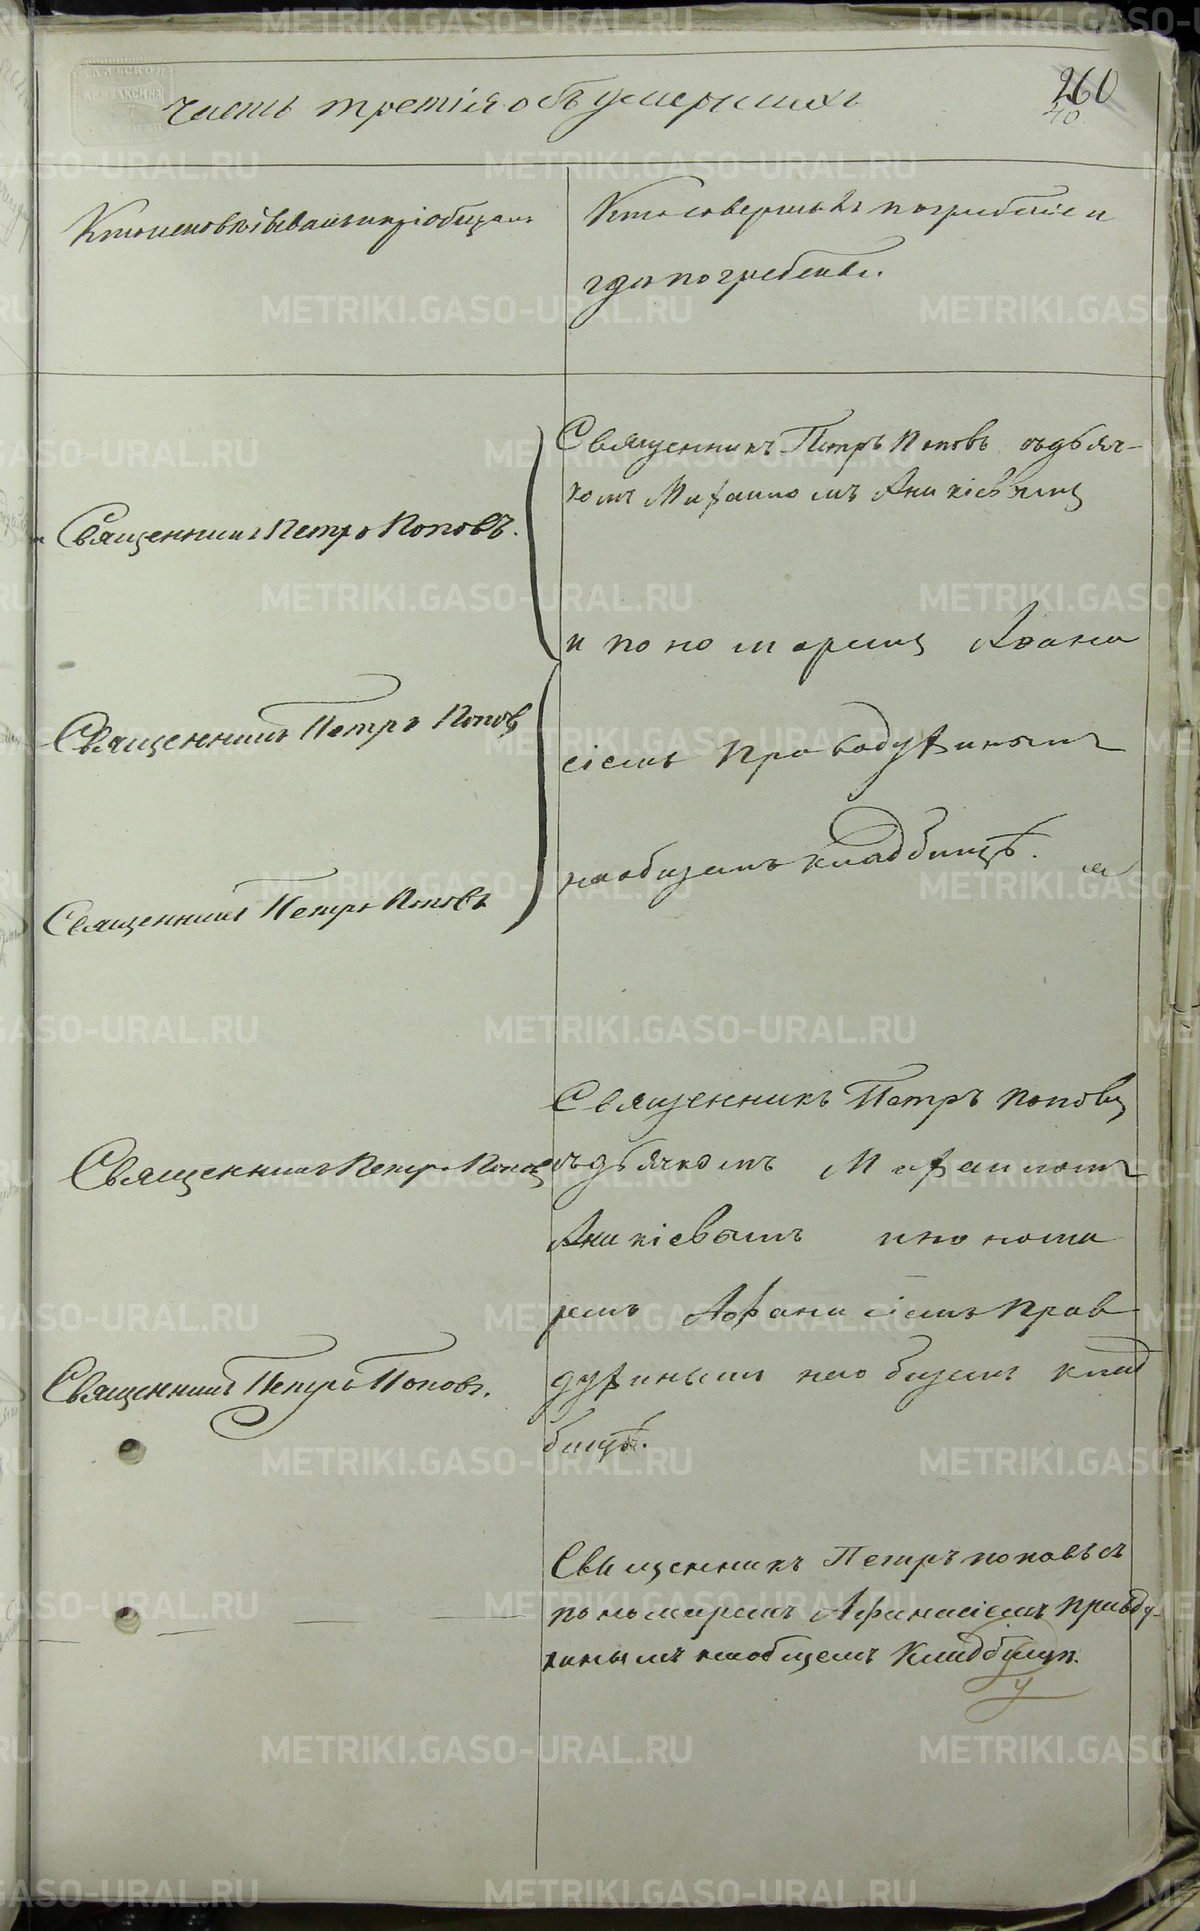 260
40
Часть третія объ умершихъ
Кто исповѣдывалъ и пріобщалъ
Кто совершалъ погребеніе и
гдѣ погребены.
Священникъ Петръ Поповъ.
Священникъ Петръ Поповъ
Священникъ Петръ Поповъ
Священникъ Петръ Поповъ
Священникъ Петръ Поповъ.
Священникъ Петръ Поповъ съ дьяч-
комъ Михаиломъ Аникіевымъ
и пономаремъ Афана
сіемъ
на общемъ кладбищѣ.
Священникъ Петръ Поповъ
съ дьячкомъ Михаиломъ
Аникіевымъ и понома
ремъ Афанасіемъ Прав
духинымъ на общемъ клад
бищѣ.
Священникъ Петръ Поповъ съ
пономаремъ Афанасіемъ Правду-
хинымъ на общемъ кладбищѣ.
METRIKI.GASO-URAL.RU